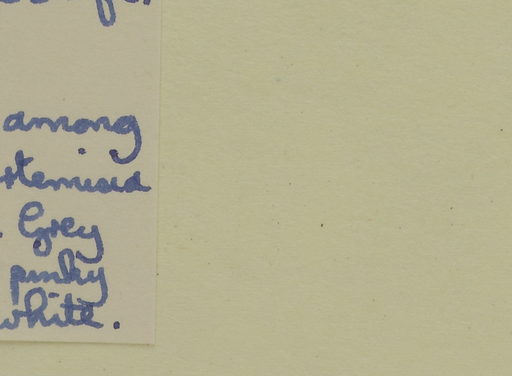 among
rtemisia
. Grey
pinky
white.